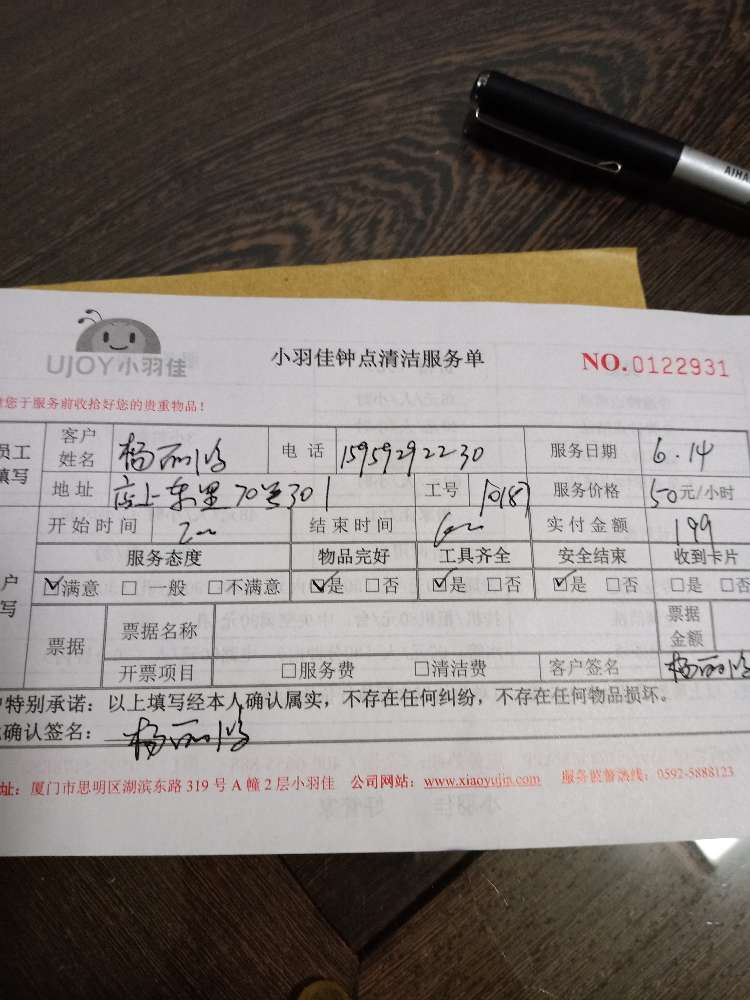 AIHA
UJOY小羽佳
小羽佳钟点清洁服务单
NO.0122931
请您于服务前收拾好您的贵重物品！
员工填写
客户姓名 杨丽鸿 电话 15959292230 服务日期 6.14
地址 店上东里70 301 工号 10187 服务价格 50元/小时
开始时间 2:00 结束时间 6:00 实付金额 199
服务态度 物品完好 工具齐全 安全结束 收到卡片
☑满意 □一般 □不满意 ☑是 □否 ☑是 □否 ☑是 □否 □是 □否
户
写
票据 票据名称 票据金额
开票项目 □服务费 □清洁费 客户签名 杨丽鸿
户特别承诺：以上填写经本人确认属实，不存在任何纠纷，不存在任何物品损坏。
确认签名： 杨丽鸿
址：厦门市思明区湖滨东路 319 号 A 幢 2 层小羽佳 公司网站：www.xiaoyujia.com 服务监督热线：0592-5888123